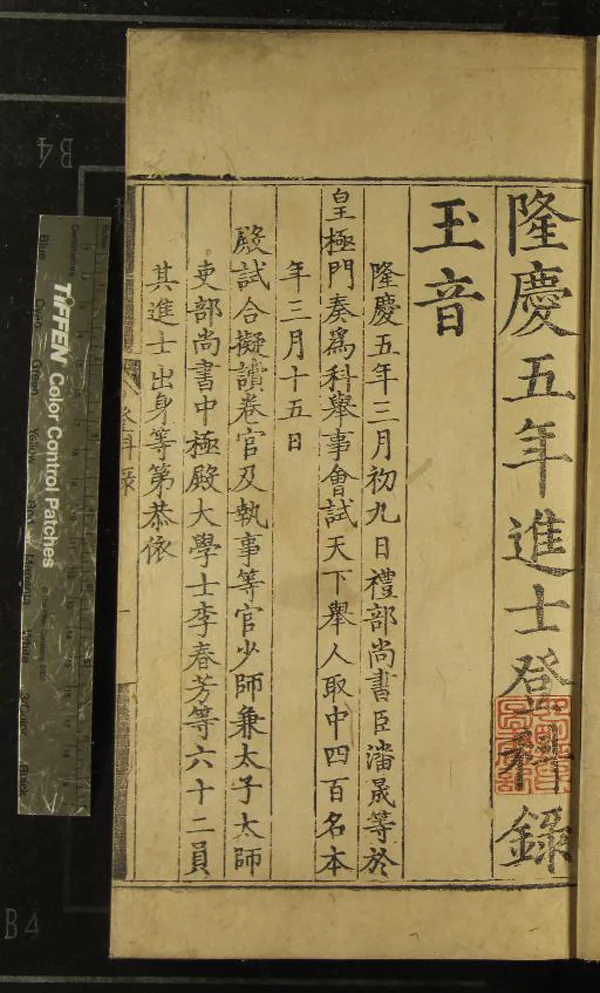 隆慶五年進士登科錄
玉音
隆慶五年三月初九日禮部尚書臣潘晟等於
皇極門奏爲科舉事會試天下舉人取中四百名本
年三月十五日
殿試合擬讀卷官及執事等官少師兼太子太師
吏部尚書中極殿大學士李春芳等六十二員
其進士出身等第恭依
登科錄
一
TIFFEN Color Control Patches
Blue
Cyan
Green
Yellow
Red
Magenta
White
3/Color
Black
Centimetres
B4
B4